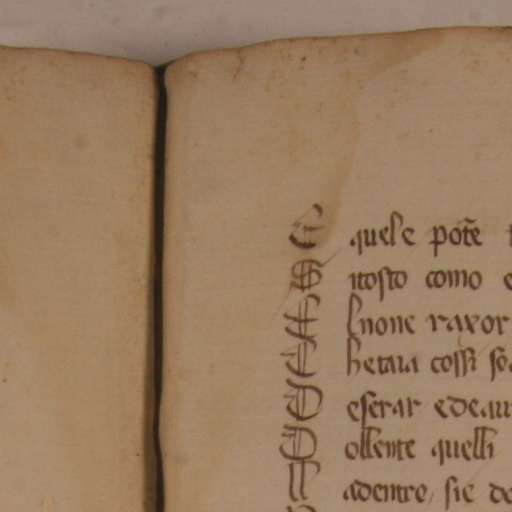 E quel e pote
S i tosto como e
E l none raxor
C he taia cossi
D eserar e de
D ollente quelli
ll adentro, sie de